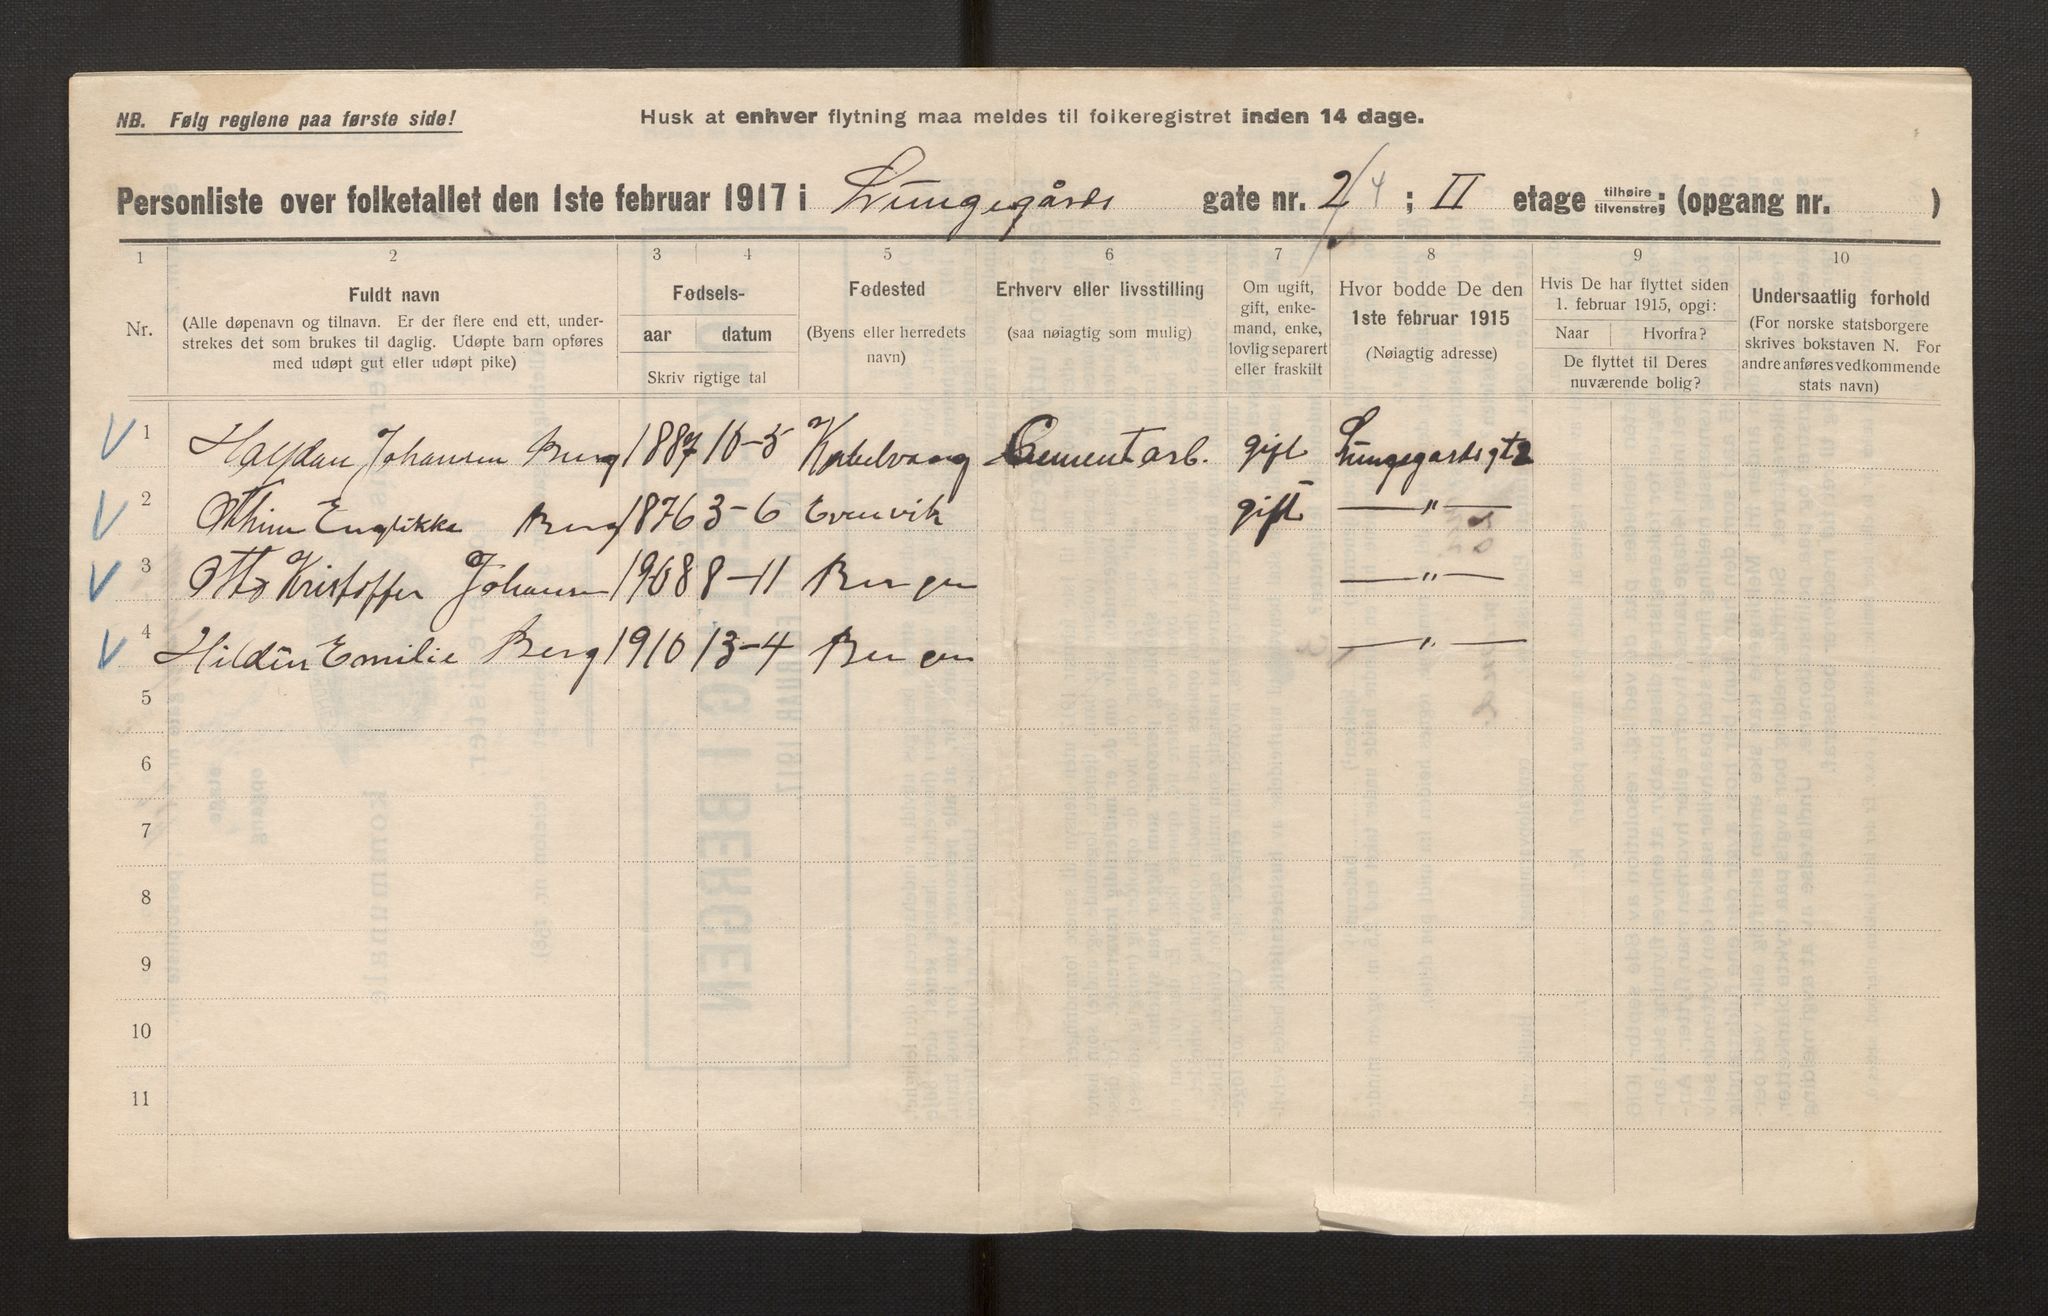 NB. Følg reglene paa første side!
Husk at enhver flytning maa meldes til folkeregistret inden 14 dage.
Personliste over folketallet den 1ste februar 1917 i Lungegårds gate nr. 2/4 ; II etage tilhøire tilvenstre; (opgang nr. )
1 2 3 4 5 6 7 8 9 10
Nr.
Fuldt navn
(Alle døpenavn og tilnavn. Er der flere end ett, under-
strekes det som brukes til daglig. Udøpte barn opføres
med udøpt gut eller udøpt pike)
Fødsels-
aar datum
Skriv rigtige tal
Fødested
(Byens eller herredets
navn)
Erhverv eller livsstilling
(saa nøiagtig som mulig)
Om ugift,
gift, enke-
mand, enke,
lovlig separert
eller fraskilt
Hvor bodde De den
1ste februar 1915
(Nøiagtig adresse)
Hvis De har flyttet siden
1. februar 1915, opgi:
Naar Hvorfra?
De flyttet til Deres
nuværende bolig?
Undersaatlig forhold
(For norske statsborgere
skrives bokstaven N. For
andre anføres vedkommende
stats navn)
1 Halfdan Johansen Berg 1887 10-5 Kabelvaag Cementarb. gift Lungegardsgt 2
2 Berg 1876 3-6 Evenvik gift — " —
3 Otto Kristoffer Johansen 1908 8-11 Bergen — " —
4 Hildur Emilie Berg 1910 13-4 Bergen — " —
5
6
7
8
9
10
11